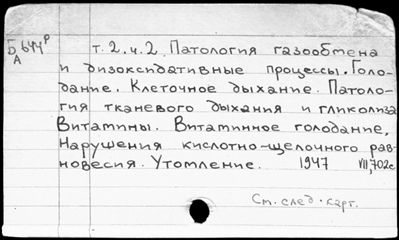 Б 644 р т. 2. ч. 2. Патология газообмена
А
и дизоксидативные процессы. Голо-
дание. Клеточное дыхание. Патоло-
гия тканевого дыхания и гликолиза
Витамины. Витаминное голодание.
Нарушения кислотно-щелочного рав-
новесия. Утомление. 1947 VII, 702с
См. след. карт.